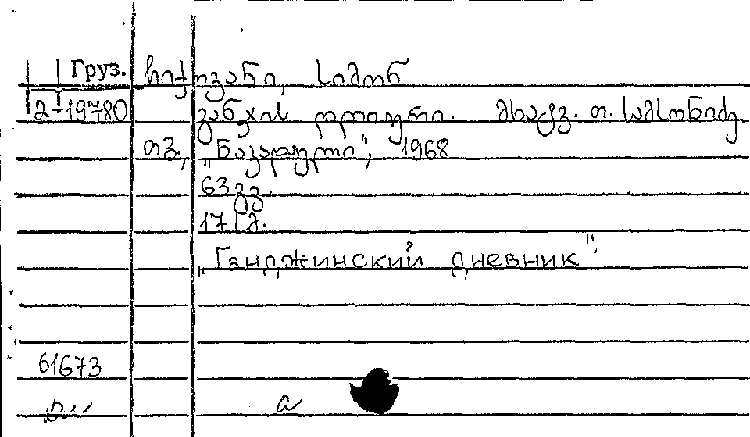 Груз. ჩიქოვანი, სიმონ
2-19780 განჯის დღიური. მხატვ. თ. სამსონიძე
თბ., „ნაკადული", 1968
63 გვ.
17 სმ.
„Ганджинский дневник"
61673
а